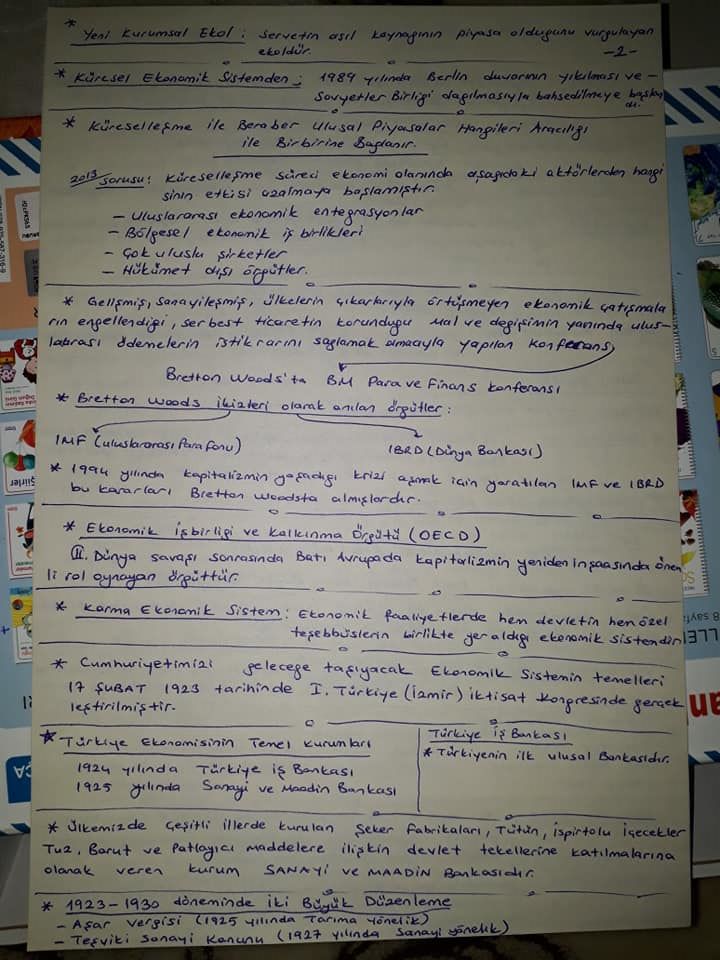 * Yeni Kurumsal Ekol : Servetin asıl kaynağının piyasa olduğunu vurgulayan
ekoldür. -2-
* Küresel Ekonomik Sistemden : 1989 yılında Berlin duvarının yıkılması ve
Sovyetler Birliği dağılmasıyla bahsedilmeye başlan
dı.
* Küreselleşme ile Beraber Ulusal Piyasalar Hangileri Aracılığı
ile Birbirine Bağlanır.
2013 sorusu : Küreselleşme süreci ekonomi alanında aşağıdaki aktörlerden hangi
sinin etkisi azalmaya başlamıştır.
- Uluslararası ekonomik entegrasyonlar
- Bölgesel ekonomik iş birlikleri
- Çok uluslu şirketler
- Hükümet dışı örgütler.
* Gelişmiş, sanayileşmiş, ülkelerin çıkarlarıyla örtüşmeyen ekonomik çatışmala
rın engellendiği, serbest ticaretin korunduğu mal ve değişimin yanında ulus-
lararası ödemelerin istikrarını sağlamak amacıyla yapılan konferans
Bretton Woods'ta BM Para ve Finans konferansı
* Bretton Woods ikizleri olarak anılan örgütler :
IMF (uluslararası Para fonu) IBRD (Dünya Bankası)
* 1994 yılında kapitalizmin yaşadığı krizi aşmak için yaratılan IMF ve IBRD
bu kararları Bretton Woodsta almışlardır.
* Ekonomik işbirliği ve Kalkınma Örgütü (OECD)
II. Dünya savaşı sonrasında Batı Avrupada kapitalizmin yeniden inşaasında önem
li rol oynayan örgüttür.
* Karma Ekonomik Sistem : Ekonomik faaliyetlerde hem devletin hem özel
teşebbüslerin birlikte yer aldığı ekonomik sistemdir
* Cumhuriyetimizi geleceğe taşıyacak Ekonomik Sistemin temelleri
17 ŞUBAT 1923 tarihinde I. Türkiye (İzmir) iktisat kongresinde gerçek
leştirilmiştir.
* Türkiye Ekonomisinin Temel kurumları
1924 yılında Türkiye iş Bankası
1925 yılında Sanayi ve Maadin Bankası
Türkiye iş Bankası
* Türkiyenin ilk ulusal Bankasıdır.
* Ülkemizde çeşitli illerde kurulan Şeker Fabrikaları, Tütün, ispirtolu içecekler
Tuz, Barut ve Patlayıcı maddelere ilişkin devlet tekellerine katılmalarına
olanak veren kurum SANAYİ ve MAADİN Bankasıdır.
* 1923-1930 döneminde iki Büyük Düzenleme
- Aşar vergisi (1925 yılında Tarıma yönelik)
- Teşviki Sanayi Kanunu (1927 yılında Sanayi yönelik)